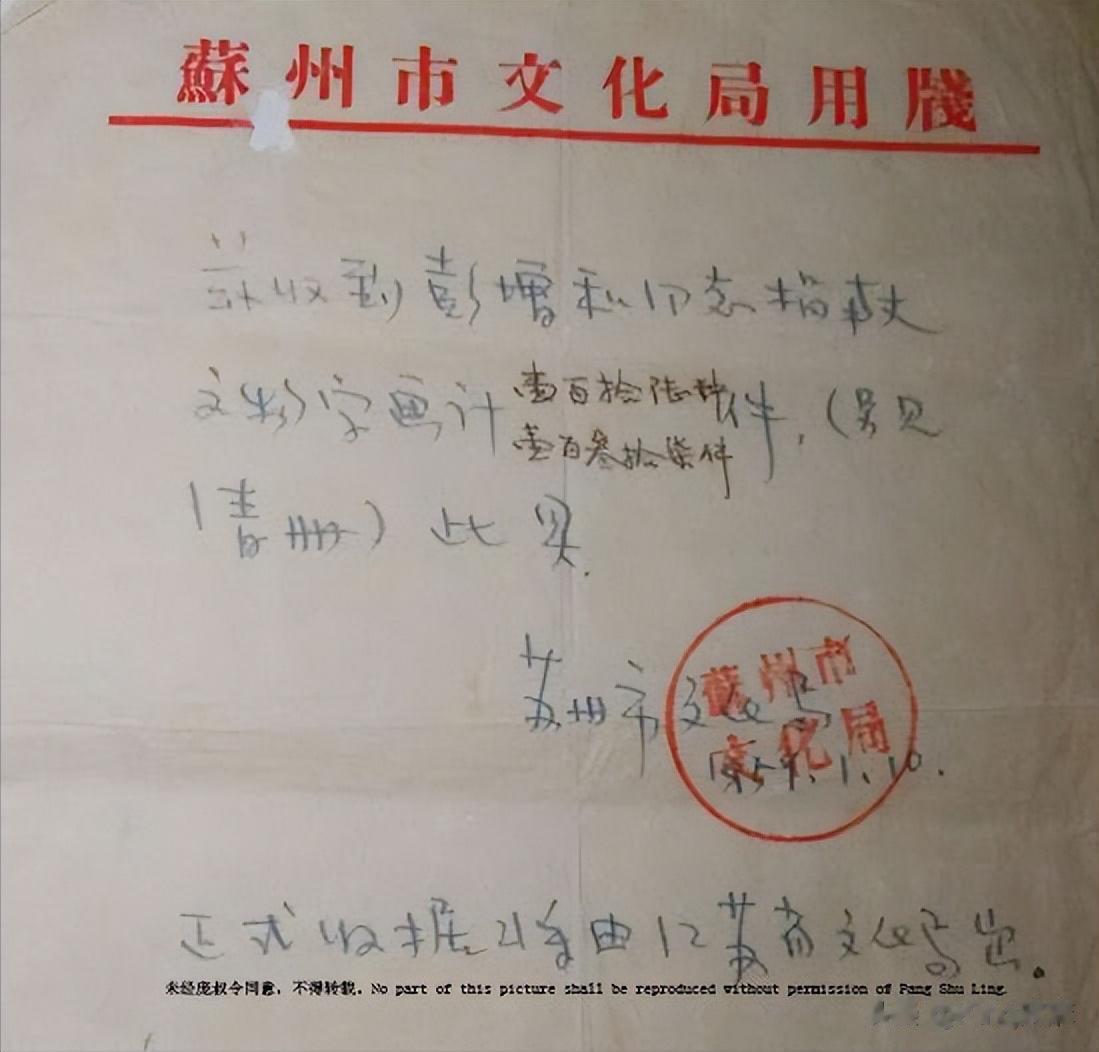 蘇州市文化局用牋
兹收到彭增和同志捐献
文物字画计壹百拾陆种件,(另见
壹百叁拾柒件
清册)此具.
苏州市文化局
蘇州市
文化局
1959.1.10.
正式收据将由江苏省文化局出。
未经庞叔令同意，不得转载. No part of this picture shall be reproduced without permission of Pang Shu Ling.